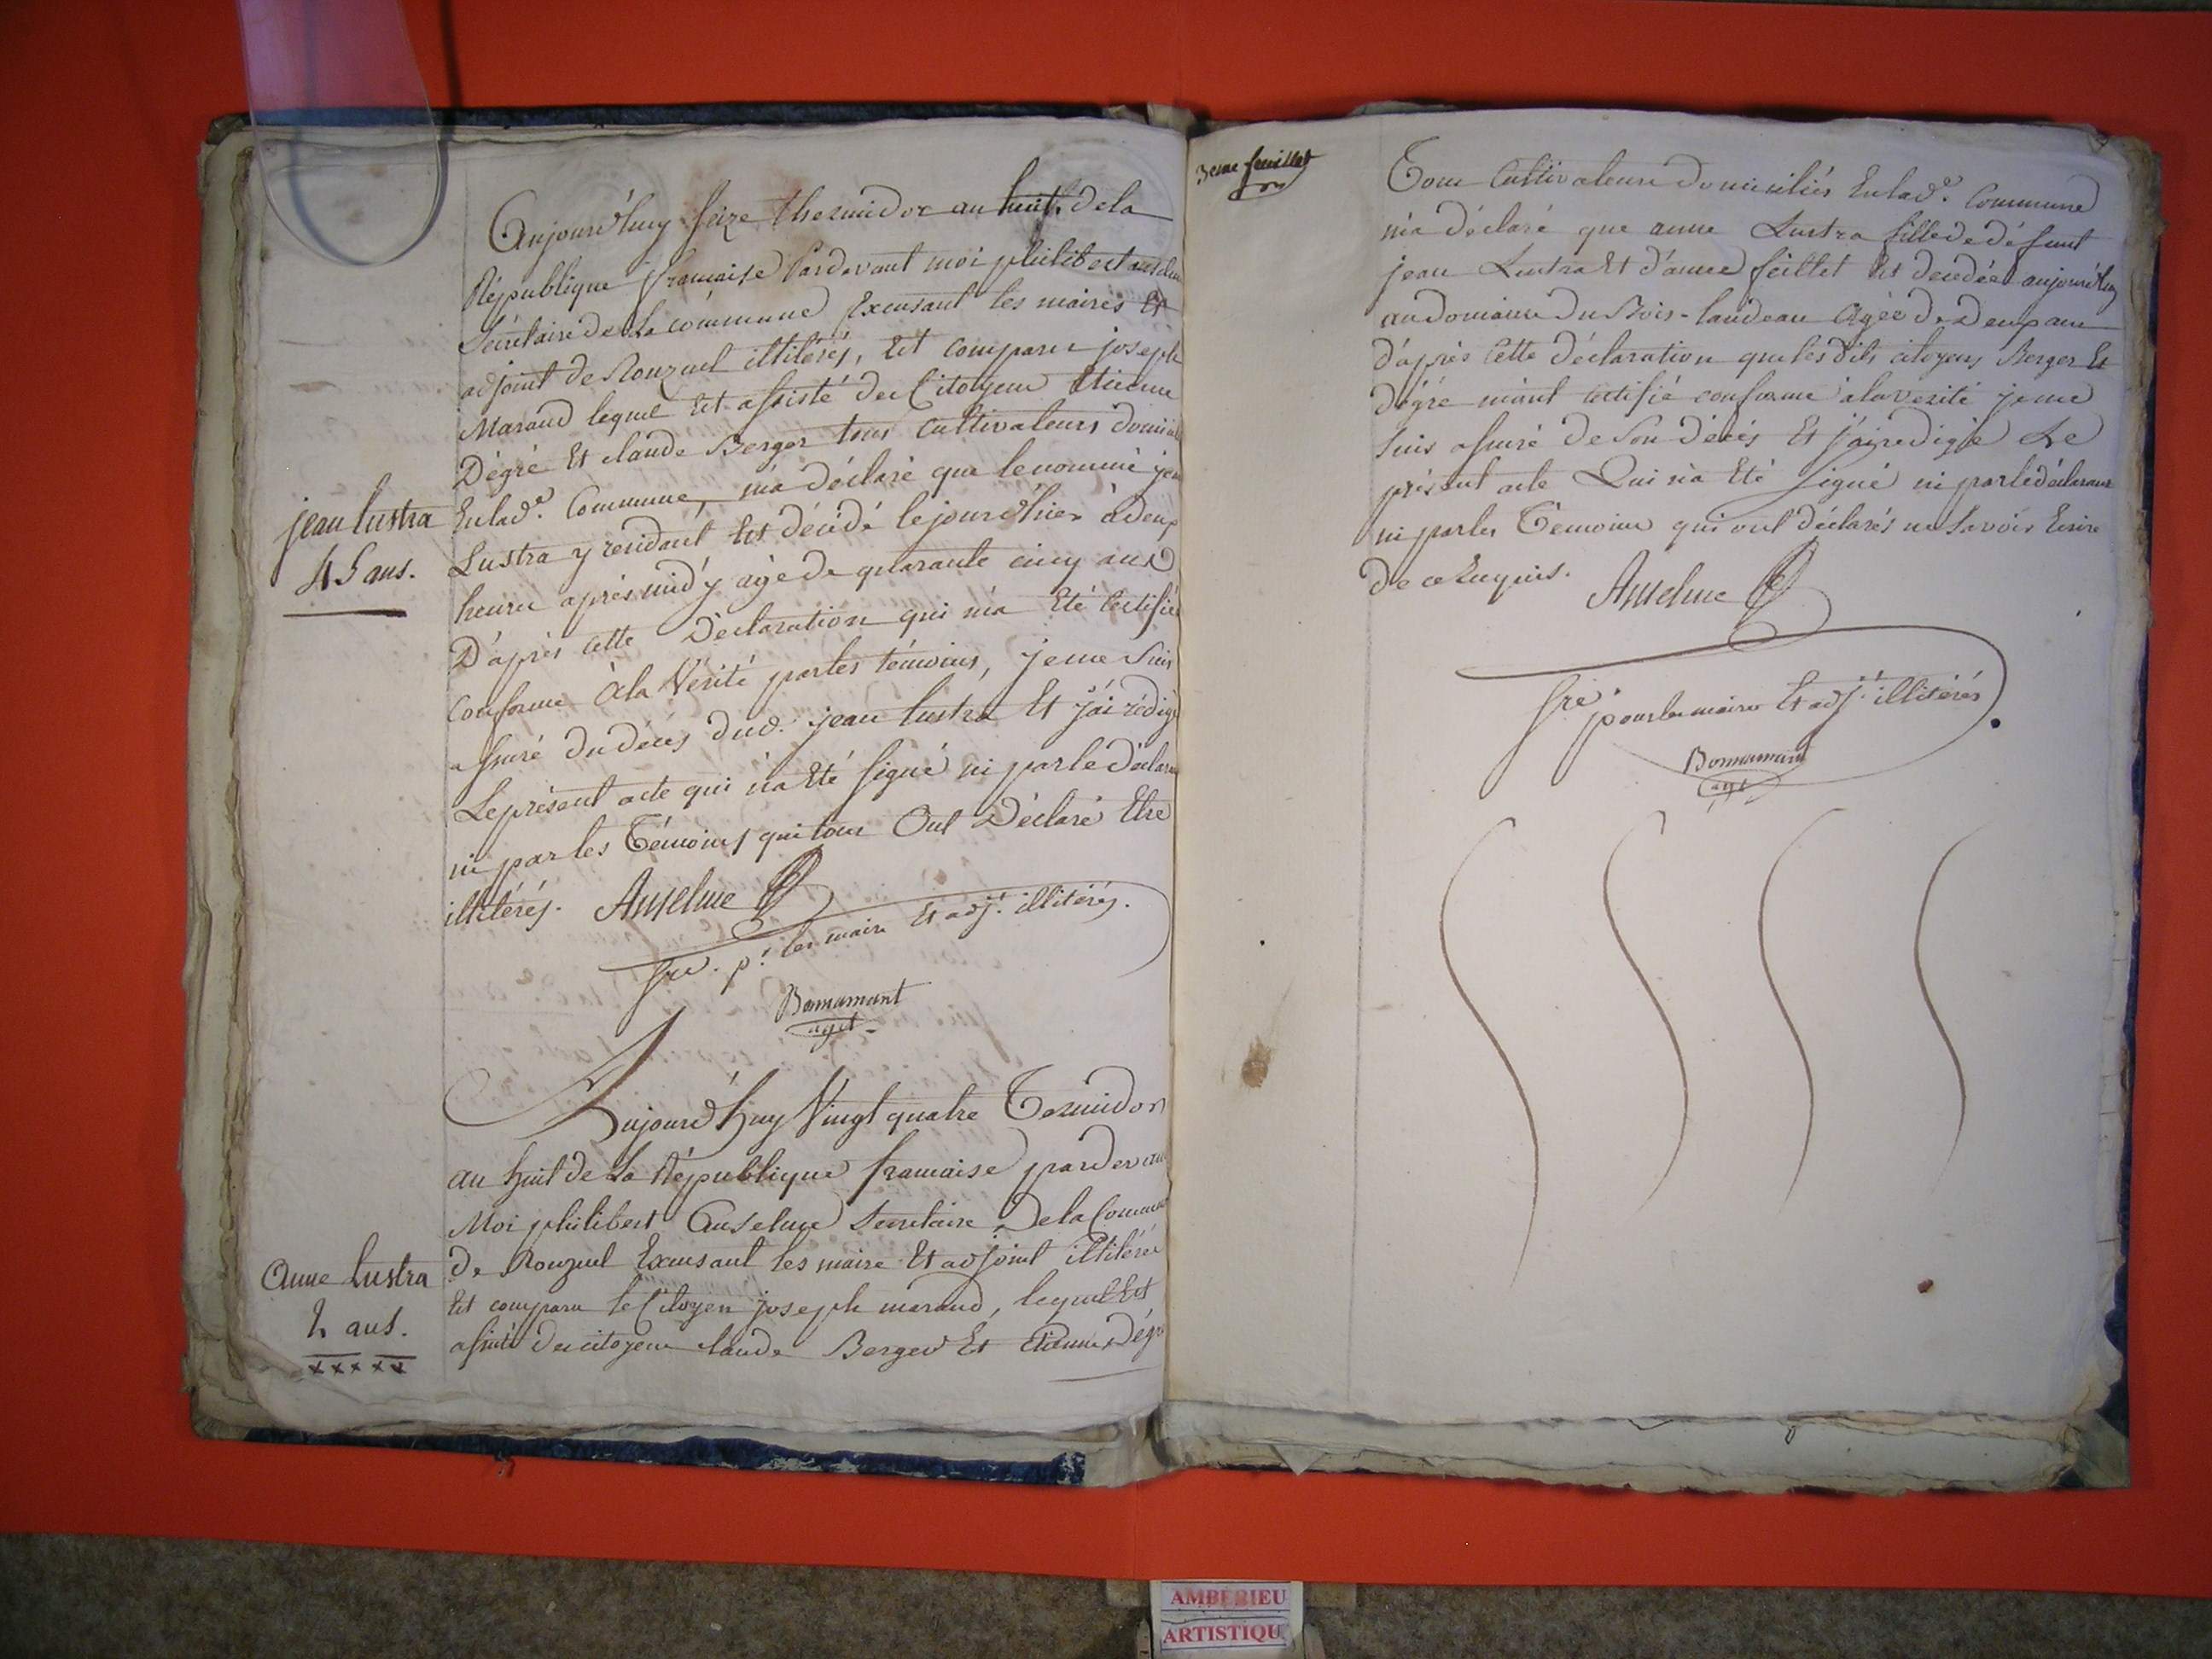 Aujourd'huy seize thermidor an huit de la
République francaise Pardevant moi philibert anselme
Sécretaire de La commune Excusant les maires Et
adjoint de Ronzuel illitérés, Est comparu joseph
Maraud lequel Est assisté des Citoyens Etienne
Dégré Et claude Berger tous Cultivateurs domicil
Enlad.e Commune, m'a déclaré que le nommé jean
jean lustra
45 ans.
Lustra y residant Est décédé le jour d'hier à deux
heures après midy agé de quarante cinq ans
D'après cette Déclaration qui m'a Eté Certifié
Conforme à la Vérité par les témoins, je me Suis
assuré du décés dud. jean lustra Et j'ai rédigé
Le présent acte qui n'a Eté signé ni par le déclarant
ni par les Témoins qui tous Ont Déclaré Etre
illitérés. Anselme
sre. pr. les maire Et adjt. illitérés.
Bonnamant
agt
Aujourd'huy Vingt quatre Termidor
an huit de La République francaise pardevant
Moi philibert Anselme Secretaire De la Commune
Anne Lustra
2 ans.
xxxxx
de Ronzuel Excusant les maire Et adjoint illitérés
Est comparu le Citoyen joseph maraud, lequel Est
assisté des citoyens claude Berger Et Etienne Dégré
3eme feuillet
Tous Cultivateurs domiciliés Enlad.e Commune
m'a déclaré que anne Lustra fille de défunt
jean Lustra Et d'anne feillet Est decedée aujourd'huy
au domaine du Bois-landeau Agée de deux ans
d'après Cette déclaration que les dits citoyens Berger Et
Dégré m'ont certifié conforme à la verité je me
suis assuré de Son décés Et j'ai redigé Le
présent acte Qui n'a Eté signé ni par le déclarant
ni par les Témoins qui ont déclarés ne Savoir Ecrire
de ce Enquis. Anselme
sre pour les maires Et adjt. illitérés
Bonnamant
agt
AMBERIEU
ARTISTIQU